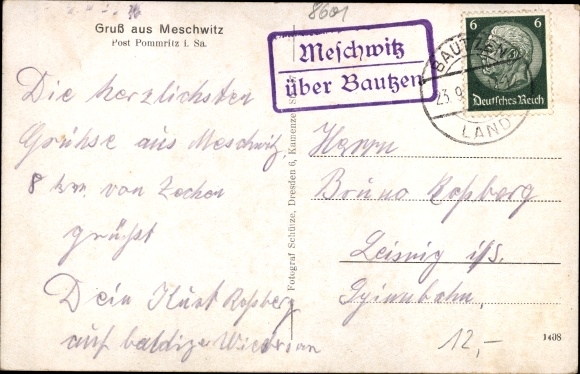 8601
Gruß aus Meschwitz
Post Pommritz i. Sa.
Meschwitz
über Bautzen
BAUTZEN
23.9.
LAND
6 6
Deutsches Reich
Die herzlichsten
Grühse aus Meschwitz
8 km. von Zechen
grühst
Dein Kurt Roßberg
auf baldige Wiedersehn
Fotograf Schütze, Dresden 6, Kamenzer
Herrn
Bruno Roßberg
Leisnig i/S.
12,-
1408